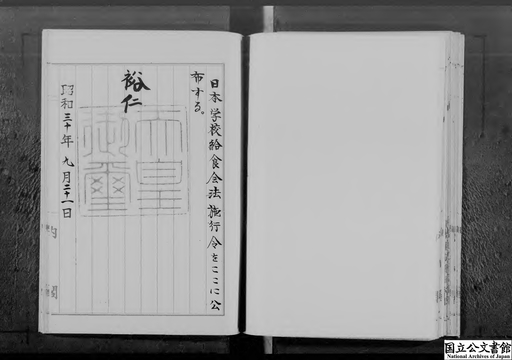 日本学校給食会法施行令をここに公
布する。
裕仁
天皇
御璽
昭和三十年九月二十一日
内閣
国立公文書館
National Archives of Japan